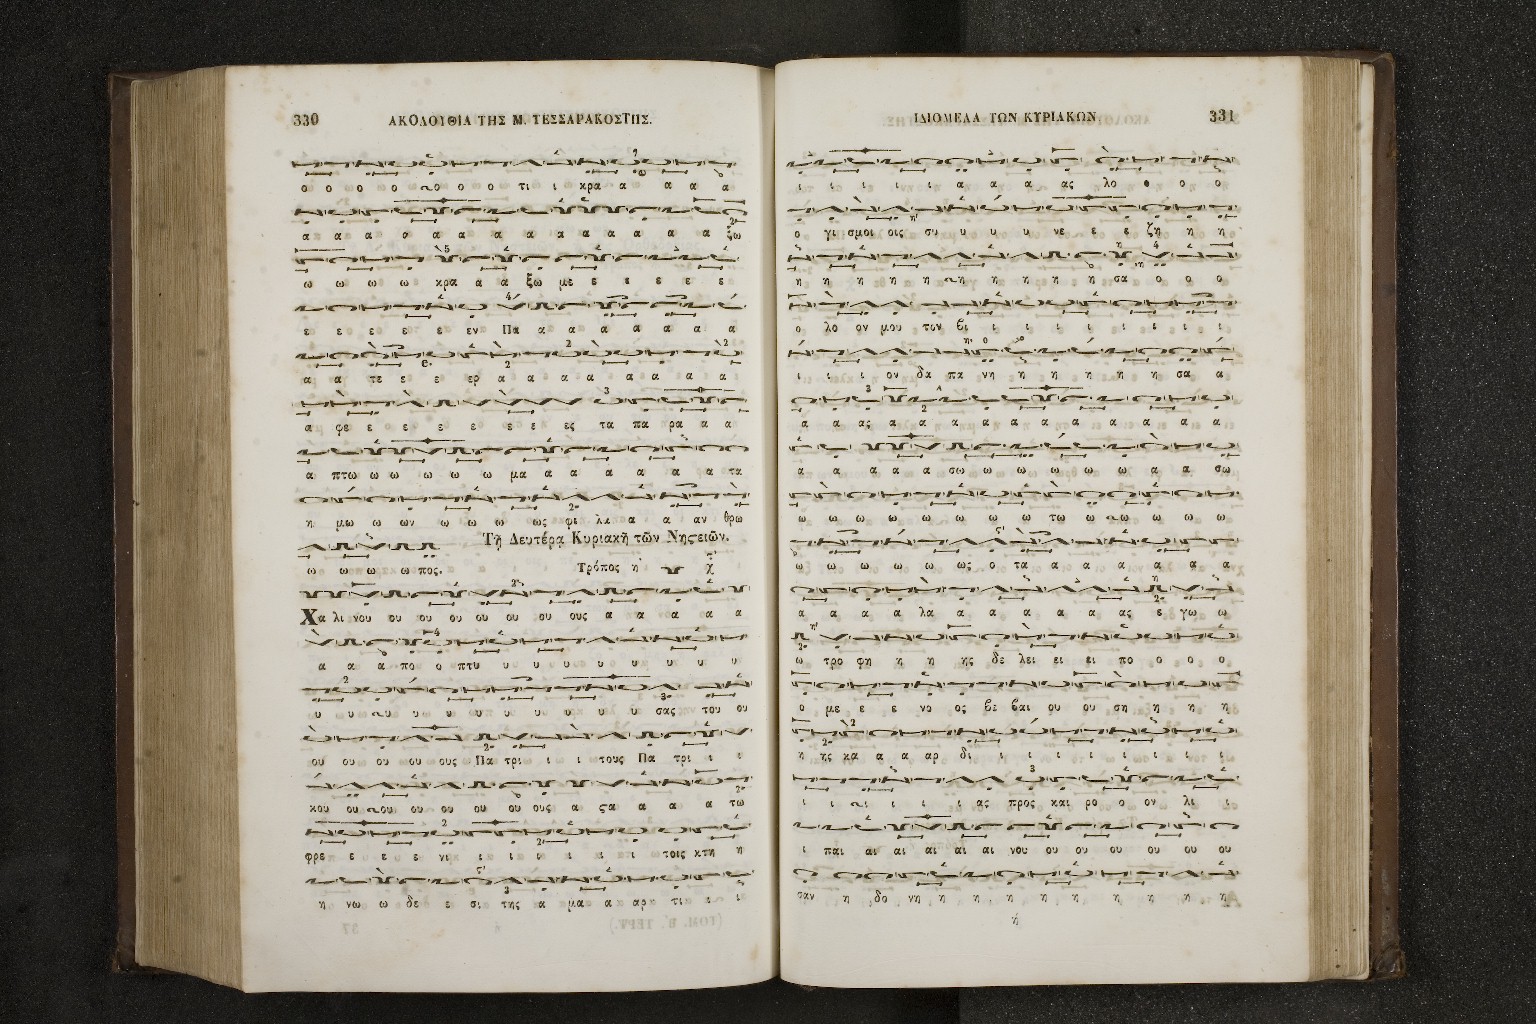 330 ΑΚΟΛΟΥΘΙΑ ΤΗΣ Μ. ΤΕΣΣΑΡΑΚΟΣΤΗΣ.
ο ο ω ο ο ο ο ο τι ι κρα α α α α
α α α α α α α α α α α α α α ξω
ω ω ω ω κρα α α ξω με ε ε ε ε ε
ε ε ε ε ε εν Πα α α α α α α α
α α τε ε ε ερ α α α α α α α α
α φε ε ε ε ε ε ε ες τα πα ρα α α
α πτω ω ω ω ω ω μα α α α α α α τα
η μω ω ων ω ω ω ως φι λα α α αν θρω
Τῇ Δευτέρᾳ Κυριακῇ τῶν Νηστειῶν.
ω ω ω ω πος. Τρόπος η
Χα λι νου ου ου ου ου ου ου ους α α α α α
α α α πο ο πτυ υ υ υ υ υ υ υ υ
υ υ υ υ υ υ υ υ υ υ σας του ου
ου ου ου ου ους Πα τρι ι ι τους Πα τρι ι ι
κου ου ου ου ου ου ου ους α ςα α α α τω
φρε ε ε ε νι ι ι ι ι ι ι ι τοις κτη η
η νω ω δε ε σι της α μα α αρ τι ι ι
(ΤΟΜ. Β, ΤΕΥΧ.) 37
ΙΔΙΟΜΕΛΑ ΤΩΝ ΚΥΡΙΑΚΩΝ 331
ι ι ι ι ι α α α ας λο ο ο ο
ο γι σμοι οις συ υ υ υ νε ε ε ζη η η
η η η η η η η η η η σα ο ο ο
ο λο ον μου τον βι ι ι ι ι ι ι ι ι
ι ι ι ον δα πα νη η η η η η σα α
α α ας α α α α α α α α α α α
α α α α α σω ω ω ω ω ω α α σω
ω ω ω ω ω ω ω ω τω ω ω ω ω ω
ω ω ω ω ω ως ο τα α α α α α α
α α α α λα α α α α α ας ε γω ω
ω τρο φη η η ης δε λει ει ει πο ο ο ο
ο με ε ε νο ος βε βαι ου ου ση η η η
η ης κα α α αρ δι ι ι ι ι ι ι ι
ι ι ι ι ι ι ας προς και ρο ο ον λι ι
ι παι αι αι αι αι αι νου ου ου ου ου ου ου
σαν η δο νη η η η η η η η η η
ή